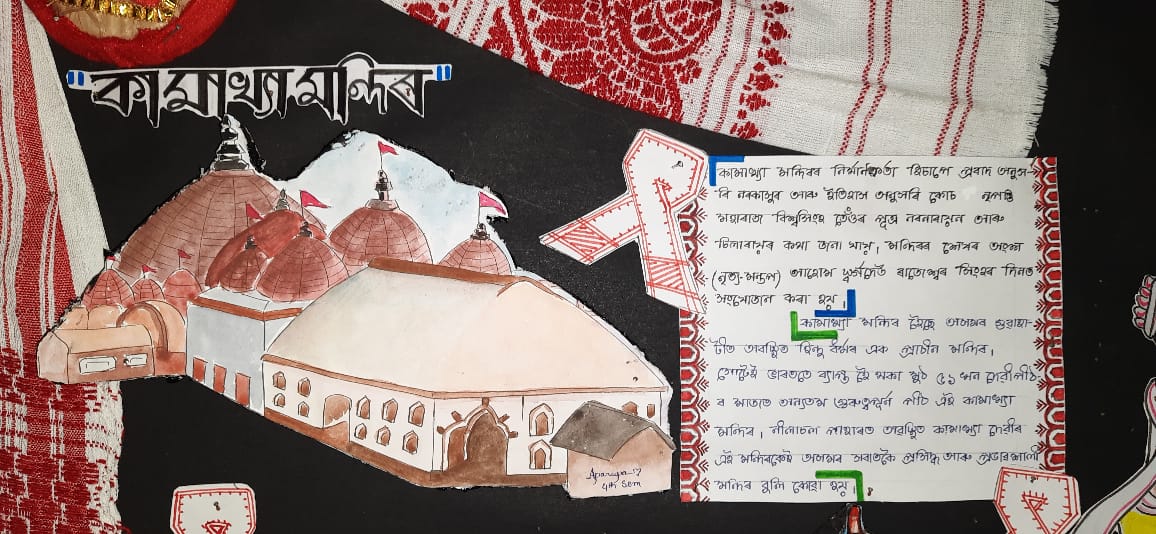 "কামাখ্যা মন্দিৰ"
কামাখ্যা মন্দিৰৰ নিৰ্মানকৰ্তা হিচাপে প্ৰবাদ অনুস-
ৰি নৰকাসুৰ আৰু ইতিহাস অনুসৰি কোচ নৃপতি
মহাৰাজ বিশ্বসিংহ তেওঁৰ পুত্ৰ নৰনাৰায়ন আৰু
চিলাৰায়ৰ কথা জনা যায়। মন্দিৰৰ শেষৰ অংশ
(নৃত্য-মন্ডপ) আহোম স্বৰ্গদেউ ৰাজেশ্বৰ সিংহৰ দিনত
সংযোজন কৰা হয়।
কামাখ্যা মন্দিৰ হৈছে অসমৰ গুৱাহা-
টীত অৱস্থিত হিন্দু ধৰ্মৰ এক প্ৰাচীন মন্দিৰ।
গোটেই ভাৰততে ব্যাপ্ত হৈ থকা মুঠ ৫১ খন দেৱীপীঠ-
ৰ মাজত অন্যতম গুৰুত্বপূৰ্ন পীঠ এই কামাখ্যা
মন্দিৰ। নীলাচল পাহাৰত অৱস্থিত কামাখ্যা দেৱীৰ
এই মন্দিৰকেই অসমৰ আটাইতকৈ প্ৰসিদ্ধ আৰু প্ৰভাৱশালী
মন্দিৰ বুলি কোৱা হয়।
4th Sem